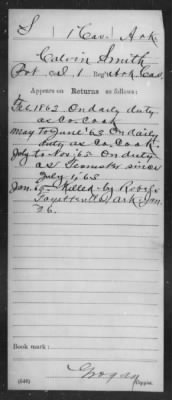 S | 1 Cav. | Ark.
Calvin Smith
Pvt. Co. I, 1 Reg't Ark. Cav.
Appears on Returns as follows:
Feb. 1863 On daily duty
as Co. Cook
May to June '63 On daily
duty as Co. Cook
July to Nov '63 On duty
as Teamster since
July 1, '63
Killed by Rebels
Fayetteville, Ark. Jan.
26.
Book mark:
Grogan
(546) Copyist.